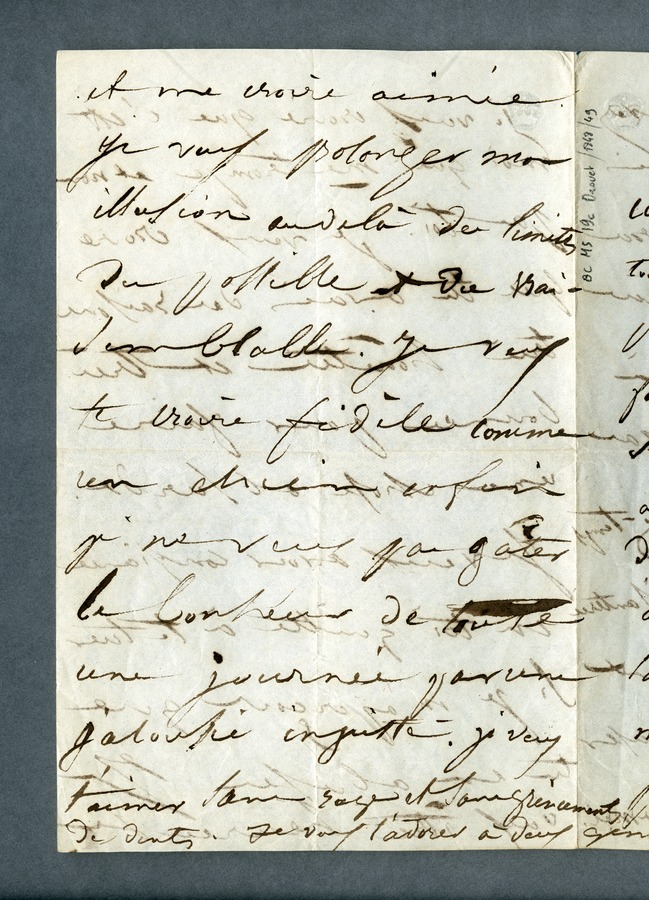 et me croire aimée.
Je veux polonger mon
illusion audelà des limites
du possible et du vrai-
semblable. Je veux
te croire fidèle comme
un chien
je ne veux pas gâter
le bonheur de toute
une journée par une
jalousie injuste. je veux
t'aimer sans rage et sans grincements
de dents. Je veux t'adorer à deux gen
BC MS 19c Drouet / 1948 / 49